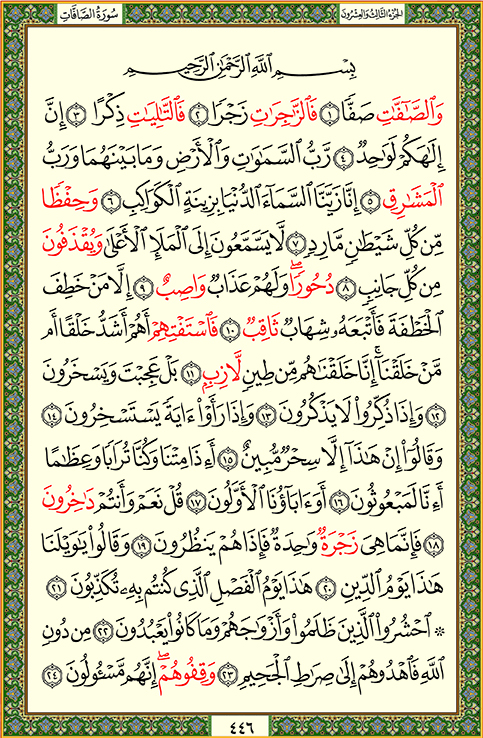 الجزء الثالث والعشرون
سورة الصافات
بِسْمِ اللَّهِ الرَّحْمَٰنِ الرَّحِيمِ
وَالصَّٰٓفَّٰتِ صَفًّا ١ فَالزَّٰجِرَٰتِ زَجْرًا ٢ فَالتَّٰلِيَٰتِ ذِكْرًا ٣ إِنَّ
إِلَٰهَكُمْ لَوَٰحِدٌ ٤ رَّبُّ السَّمَٰوَٰتِ وَالْأَرْضِ وَمَا بَيْنَهُمَا وَرَبُّ
الْمَشَٰرِقِ ٥ إِنَّا زَيَّنَّا السَّمَآءَ الدُّنْيَا بِزِينَةٍ الْكَوَاكِبِ ٦ وَحِفْظًا
مِّن كُلِّ شَيْطَٰنٍ مَّارِدٍ ٧ لَّا يَسَّمَّعُونَ إِلَى الْمَلَإِ الْأَعْلَىٰ وَيُقْذَفُونَ
مِن كُلِّ جَانِبٍ ٨ دُحُورًا ۖ وَلَهُمْ عَذَابٌ وَاصِبٌ ٩ إِلَّا مَنْ خَطِفَ
الْخَطْفَةَ فَأَتْبَعَهُۥ شِهَابٌ ثَاقِبٌ ١٠ فَاسْتَفْتِهِمْ أَهُمْ أَشَدُّ خَلْقًا أَم
مَّنْ خَلَقْنَآ ۚ إِنَّا خَلَقْنَٰهُم مِّن طِينٍ لَّازِبٍ ١١ بَلْ عَجِبْتَ وَيَسْخَرُونَ
١٢ وَإِذَا ذُكِّرُوا۟ لَا يَذْكُرُونَ ١٣ وَإِذَا رَأَوْا۟ ءَايَةً يَسْتَسْخِرُونَ ١٤
وَقَالُوٓا۟ إِنْ هَٰذَآ إِلَّا سِحْرٌ مُّبِينٌ ١٥ أَءِذَا مِتْنَا وَكُنَّا تُرَابًا وَعِظَٰمًا
أَءِنَّا لَمَبْعُوثُونَ ١٦ أَوَءَابَآؤُنَا الْأَوَّلُونَ ١٧ قُلْ نَعَمْ وَأَنتُمْ دَٰخِرُونَ
١٨ فَإِنَّمَا هِىَ زَجْرَةٌ وَٰحِدَةٌ فَإِذَا هُمْ يَنظُرُونَ ١٩ وَقَالُوا۟ يَٰوَيْلَنَا
هَٰذَا يَوْمُ الدِّينِ ٢٠ هَٰذَا يَوْمُ الْفَصْلِ الَّذِى كُنتُم بِهِۦ تُكَذِّبُونَ ٢١
۞ احْشُرُوا۟ الَّذِينَ ظَلَمُوا۟ وَأَزْوَٰجَهُمْ وَمَا كَانُوا۟ يَعْبُدُونَ ٢٢ مِن دُونِ
اللَّهِ فَاهْدُوهُمْ إِلَىٰ صِرَٰطِ الْجَحِيمِ ٢٣ وَقِفُوهُمْ ۖ إِنَّهُم مَّسْـُٔولُونَ ٢٤
٤٤٦